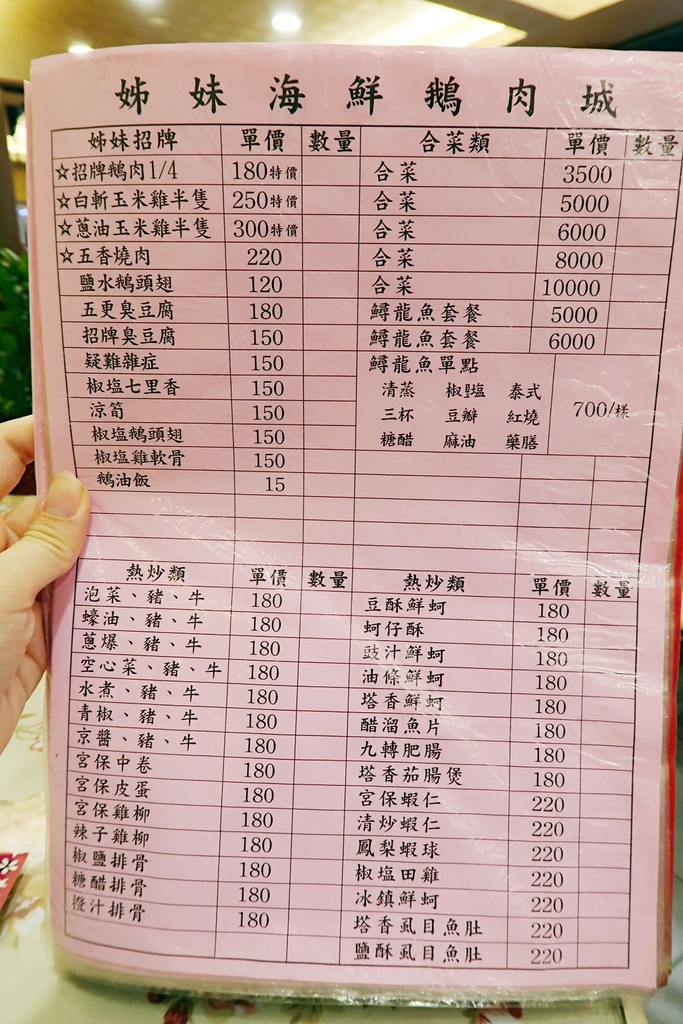 姊妹海鮮鵝肉城
姊妹招牌 單價 數量
☆招牌鵝肉1/4 180特價
☆白斬玉米雞半隻 250特價
☆蔥油玉米雞半隻 300特價
☆五香燒肉 220
鹽水鵝頭翅 120
五更臭豆腐 180
招牌臭豆腐 150
疑難雜症 150
椒塩七里香 150
涼筍 150
椒塩鵝頭翅 150
椒塩雞軟骨 150
鵝油飯 15
合菜類 單價 數量
合菜 3500
合菜 5000
合菜 6000
合菜 8000
合菜 10000
鱘龍魚套餐 5000
鱘龍魚套餐 6000
鱘龍魚單點
清蒸 椒塩 泰式
三杯 豆瓣 紅燒 700/樣
糖醋 麻油 藥膳
熱炒類 單價 數量
泡菜、豬、牛 180
蠔油、豬、牛 180
蔥爆、豬、牛 180
空心菜、豬、牛 180
水煮、豬、牛 180
青椒、豬、牛 180
京醬、豬、牛 180
宮保中卷 180
宮保皮蛋 180
宮保雞柳 180
辣子雞柳 180
椒鹽排骨 180
糖醋排骨 180
橙汁排骨 180
熱炒類 單價 數量
豆酥鮮蚵 180
蚵仔酥 180
豉汁鮮蚵 180
油條鮮蚵 180
塔香鮮蚵 180
醋溜魚片 180
九轉肥腸 180
塔香茄腸煲 180
宮保蝦仁 220
清炒蝦仁 220
鳳梨蝦球 220
椒塩田雞 220
冰鎮鮮蚵 220
塔香虱目魚肚 220
鹽酥虱目魚肚 220